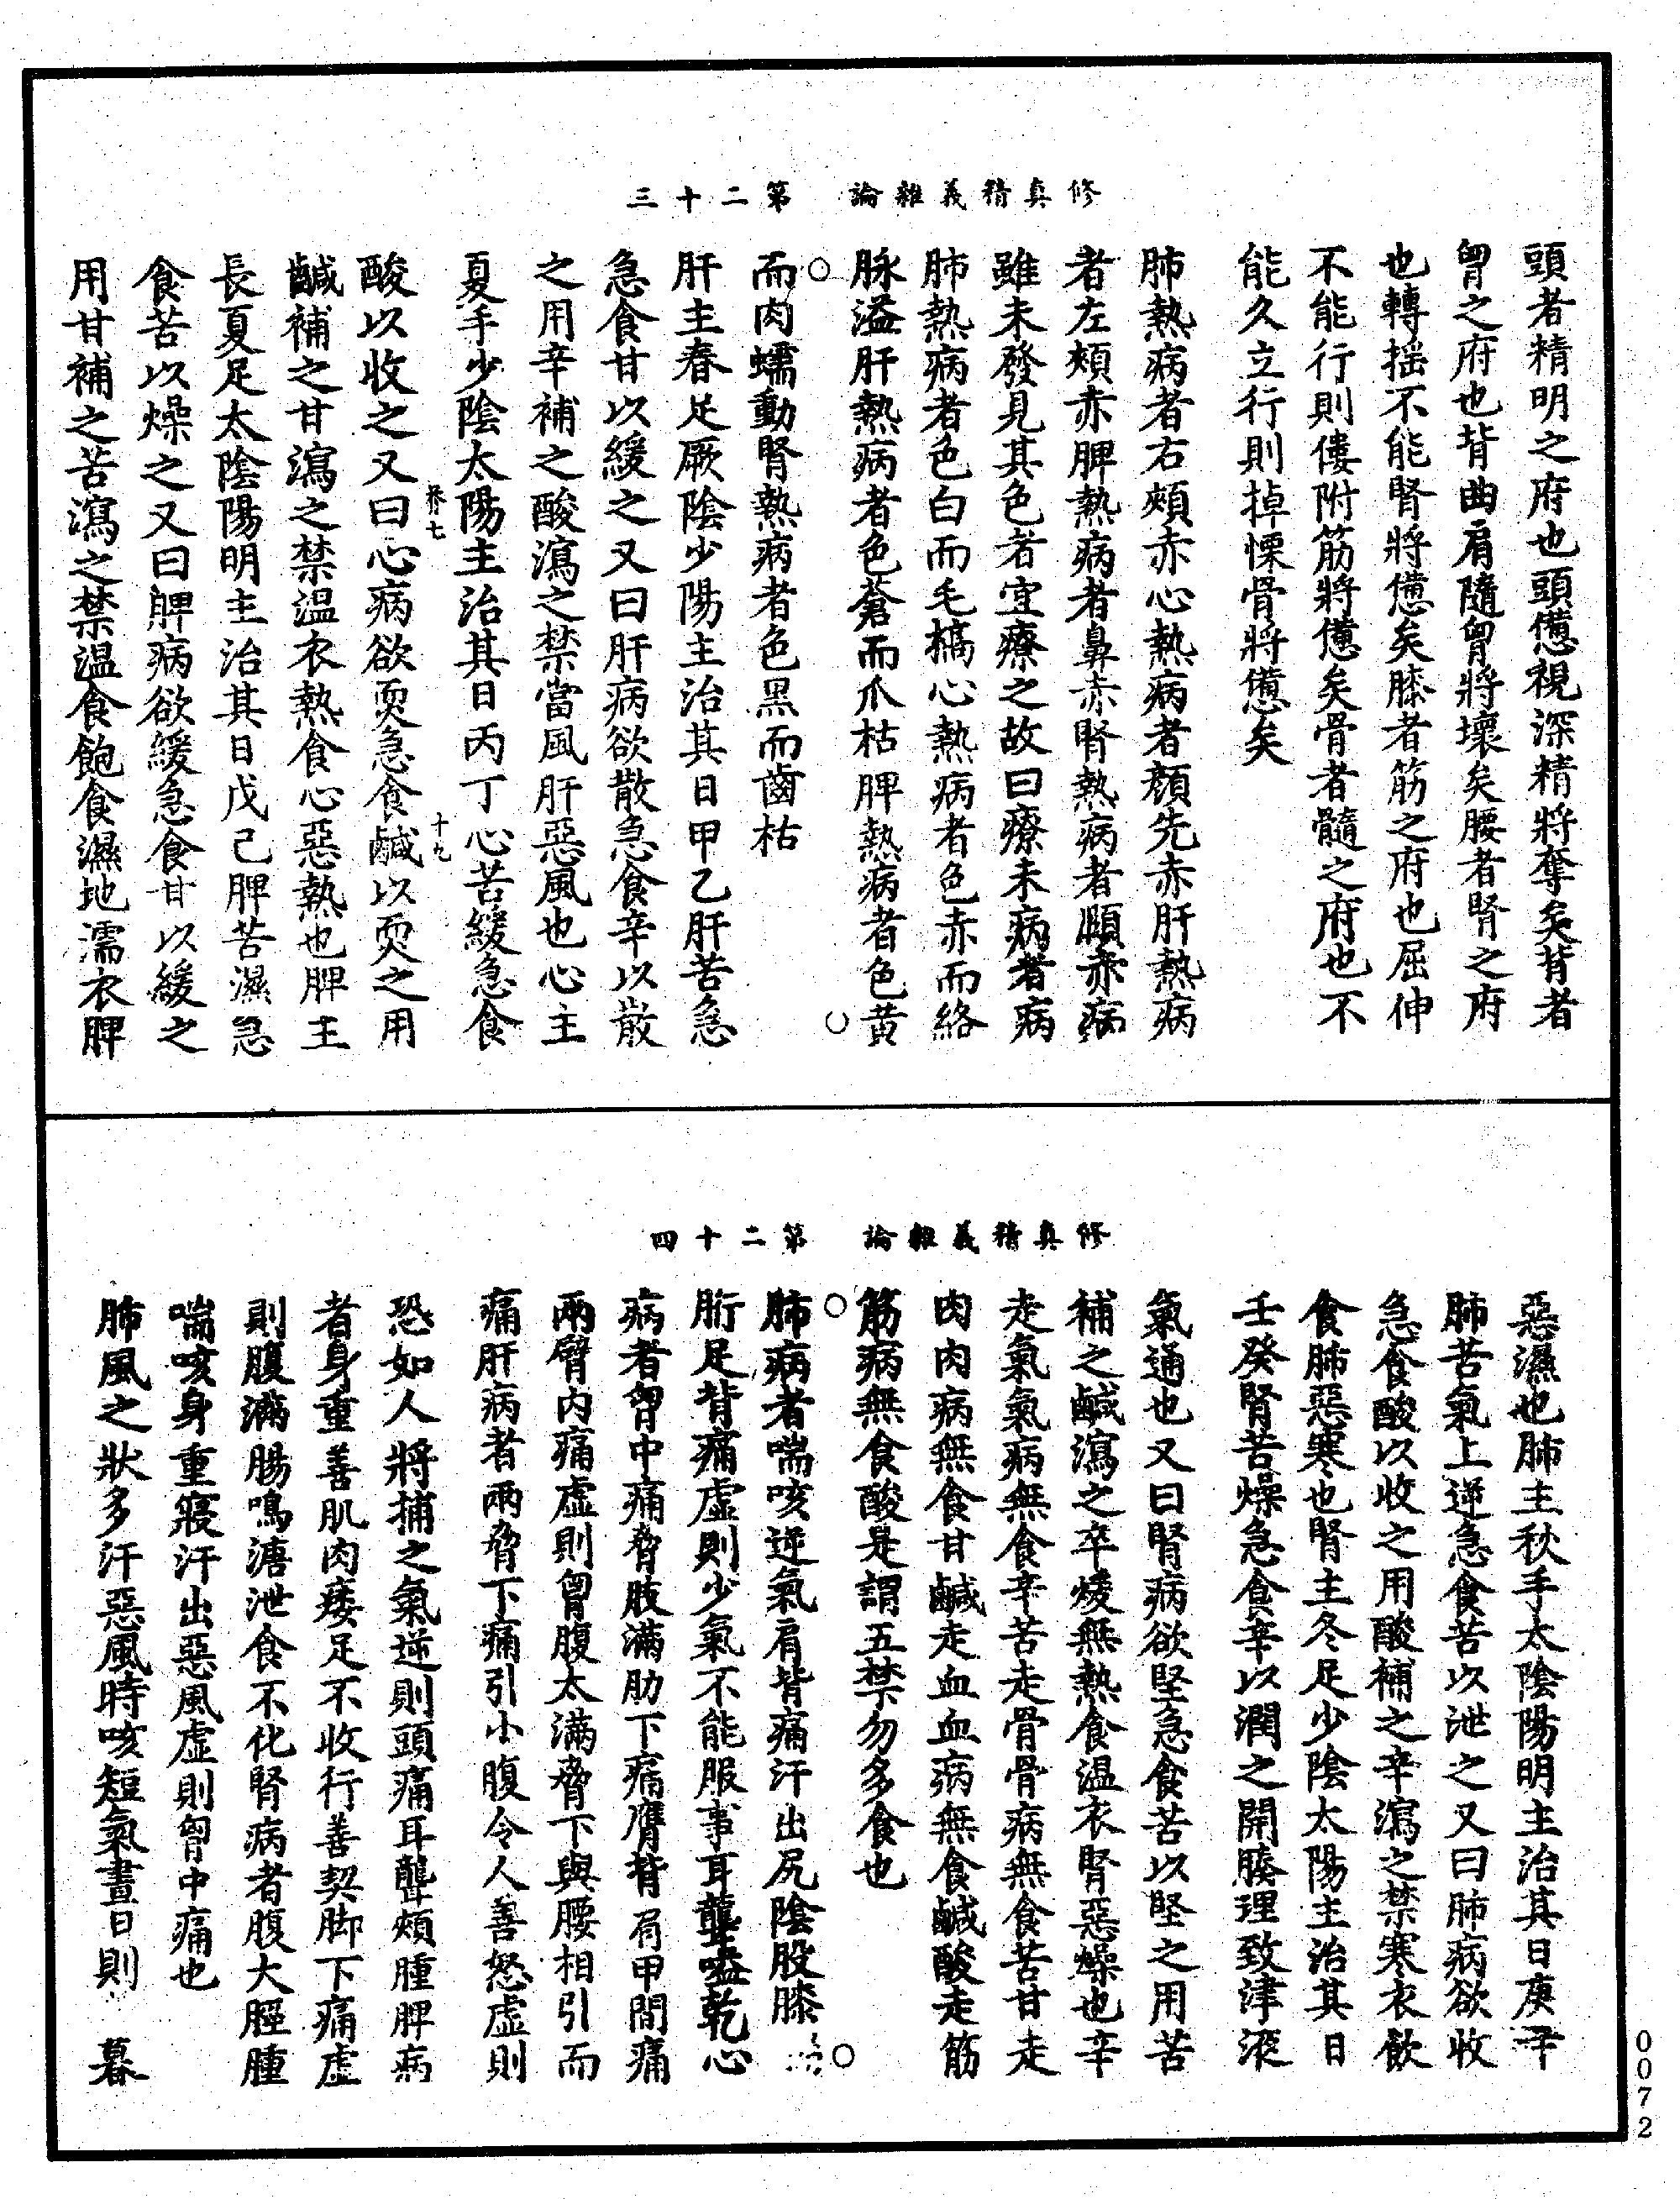 修真精義雜論　第二十三
頭者精明之府也頭憊視深精將奪矣背者
胷之府也背曲肩隨胷將壞矣腰者腎之府
也轉揺不能腎將憊矣膝者筋之府也屈伸
不能行則僂附筋將憊矣骨者髓之府也不
能久立行則掉慄骨將憊矣
肺熱病者右頰赤心熱病者顏先赤肝熱病
者左頰赤脾熱病者鼻赤腎熱病者頥赤病
雖未發見其色者宜療之故曰療未病者病
肺熱病者色白而毛槁心熱病者色赤而絡
脉溢肝熱病者色蒼而爪枯脾熱病者色黃
而肉蠕動腎熱病者色黑而齒枯
肝主春足厥陰少陽主治其日甲乙肝苦急
急食甘以緩之又曰肝病欲散急食辛以散
之用辛補之酸瀉之禁當風肝惡風也心主
夏手少陰太陽主治其日丙丁心苦緩急食
卷七　十九
酸以收之又曰心病欲耎急食鹹以耎之用
鹹補之甘瀉之禁溫衣熱食心惡熱也脾主
長夏足太陰陽明主治其日戊己脾苦濕急
食苦以燥之又曰脾病欲緩急食甘以緩之
用甘補之苦瀉之禁溫食飽食濕地濡衣脾
修真精義雜論　第二十四
惡濕也肺主秋手太陰陽明主治其日庚辛
肺苦氣上逆急食苦以泄之又曰肺病欲收
急食酸以收之用酸補之辛瀉之禁寒衣飲
食肺惡寒也腎主冬足少陰太陽主治其日
壬癸腎苦燥急食辛以潤之開腠理致津液
氣通也又曰腎病欲堅急食苦以堅之用苦
補之鹹瀉之卒煖無熱食溫衣腎惡燥也辛
走氣氣病無食辛苦走骨骨病無食苦甘走
肉肉病無食甘鹹走血血病無食鹹酸走筋
筋病無食酸是謂五禁勿多食也
肺病者喘咳逆氣肩背痛汗出尻陰股膝
胻足背痛虛則少氣不能服事耳聾嗌乾心
病者胷中痛脅肢滿肋下痛膺背肩甲間痛
兩臂内痛虛則胷腹太滿脅下與腰相引而
痛肝病者兩脅下痛引小腹令人善怒虛則
恐如人將捕之氣逆則頭痛耳聾頰腫脾病
者身重善肌肉痿足不收行善契脚下痛虛
則腹滿腸鳴溏泄食不化腎病者腹大脛腫
喘咳身重寢汗出惡風虛則胷中痛也
肺風之狀多汗惡風時咳短氣晝日則　暮
0072